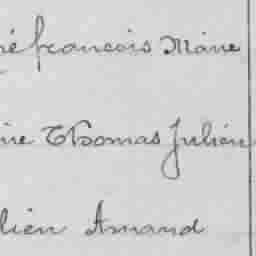 né françois Marie
rie Thomas Julien
lien Amand